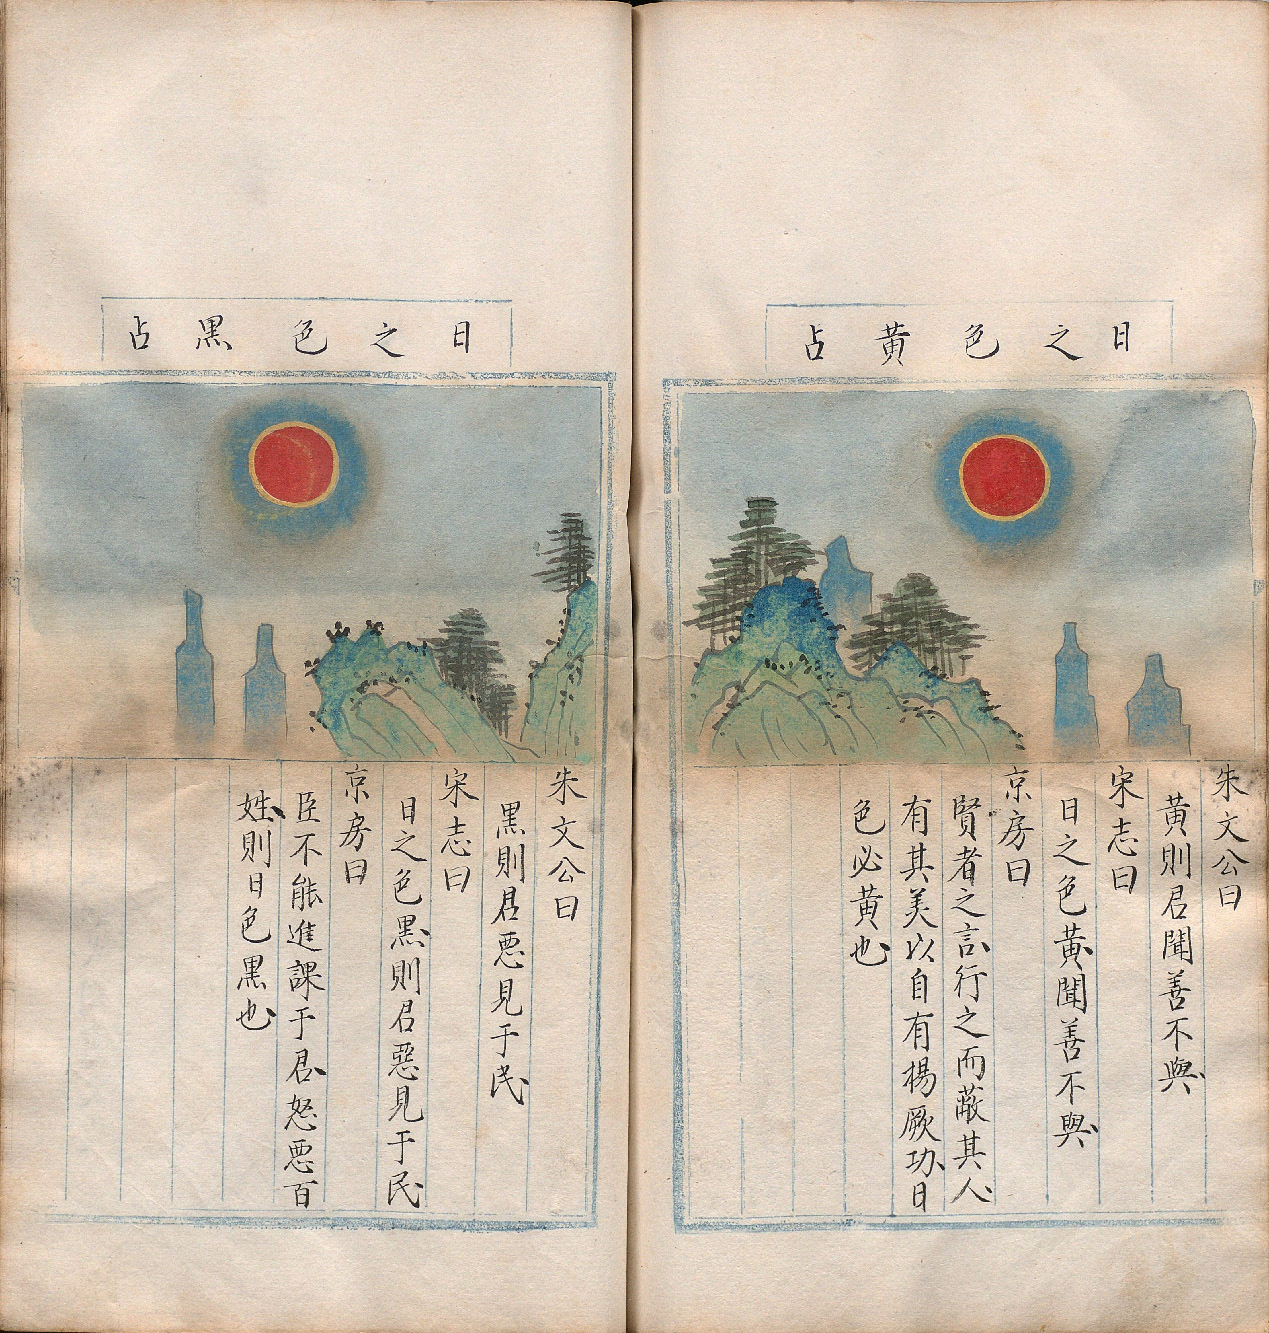 日之色黄占
朱文公曰
黄則君聞善不與
宋志曰
日之色黄聞善不與
京房曰
賢者之言行之而蔽其人
有其美以自有楊厥功日
色必黄也
日之色黒占
朱文公曰
黒則君悪見于民
宋志曰
日之色黒則君惡見于民
京房曰
臣不能進諜于君怒悪百
姓則日色黒也